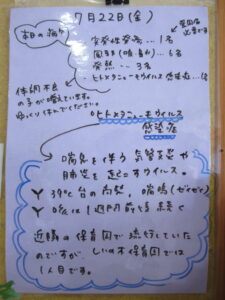 7月22日(金)
本日の病欠
突発性発疹…1名
風邪(咳・鼻水)…6名
発熱…3名
ヒトメタニューモウイルス感染症…1名
登園届
必要です
体調不良
の子が増えています。
ゆっくり休んでください。
ヒトメタニューモウイルス
感染症
喘鳴を伴う気管支炎や
肺炎を起こすウイルス。
39℃台の高熱、喘鳴(ゼイゼイ)
咳は1週間前後続く
近隣の保育園で流行していた
のですが、しいの木保育園では
1人目です。